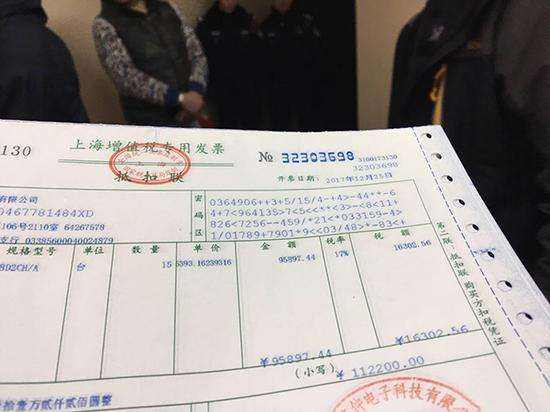 130 上海增值税专用发票 № 32303698 3100173130
抵扣联 开票日期: 2017年12月25日
有限公司
0467781484XD
106号2110室 64267578
支行 03385600040024879
密码区
0364906++3+5/15/4-+4>-44**-6
4+7<964135>7<5<<++<3>-<8<11+
826<7256--459/+21<+033159-4>
1/01789+7901+9<<03/48>*-83<+
规格型号 单位 数量 单价 金额 税率 税额
8D2CH/A 台 15 5393.16239316 95897.44 17% 16302.56
¥95897.44 ¥16302.56
壹拾壹万贰仟贰佰圆整 (小写) ¥112200.00
第二联 抵扣联 购买方扣税凭证
电子科技有限